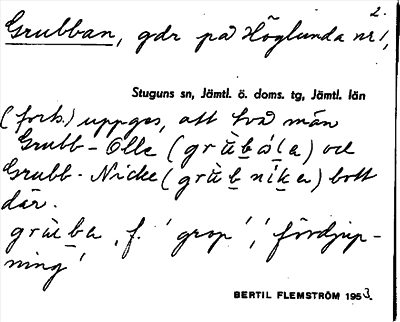 2.
Grubban, gdr på Höglunda nr 1,
Stuguns sn, Jämtl. ö. doms. tg, Jämtl. län
(forts.) uppges, att två män
Grubb-Olle (grùból̀a) och
Grubb-Nicke (grùbnìka) bott
där.
grùba, f. 'grop', 'fördjup-
ning'
BERTIL FLEMSTRÖM 1953.